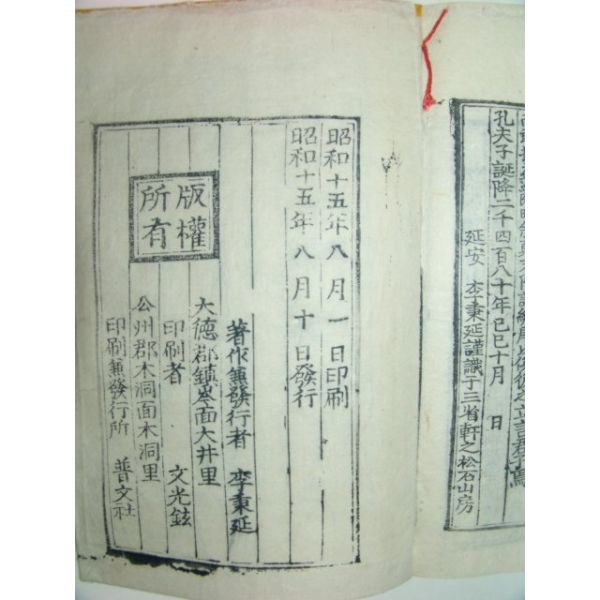 孔夫子誕降二千四百八十年己巳十月　日
延安　李秉延謹識于三省軒之松石山房
昭和十五年八月一日印刷
昭和十五年八月十日發行
版權
所有
著作兼發行者　李秉延
大德郡鎮岑面大井里
印刷者　文光鉉
公州郡木洞面木洞里
印刷兼發行所　普文社